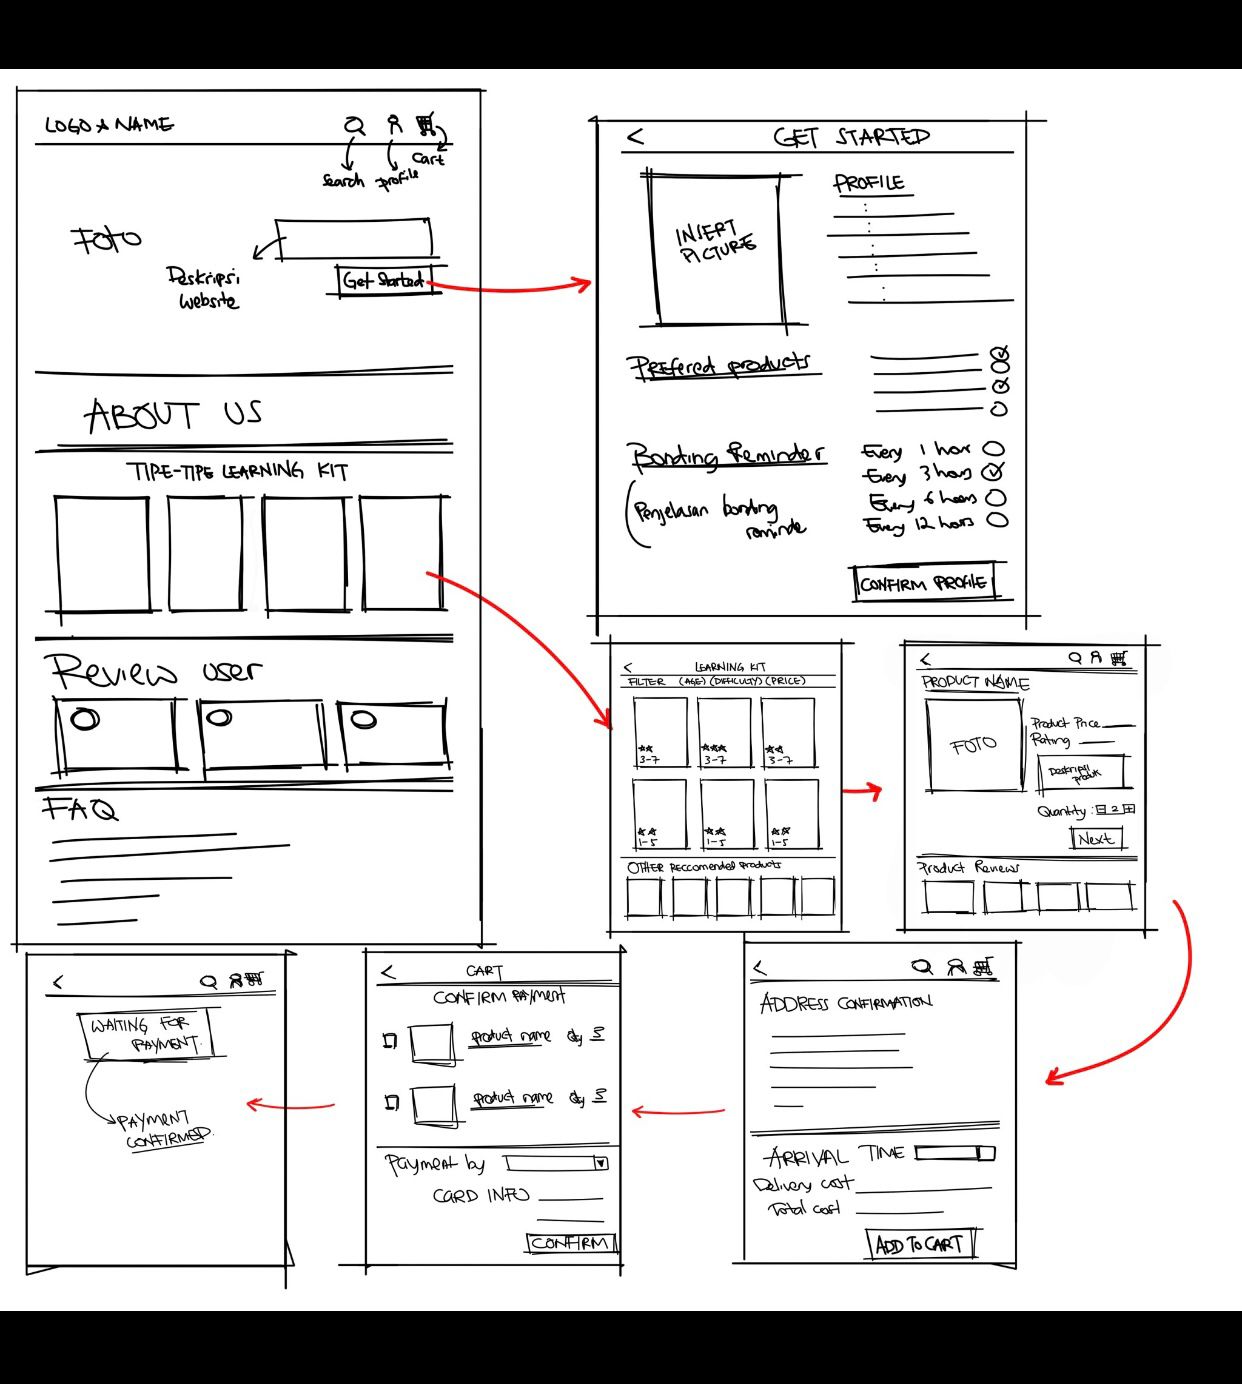 LOGO & NAME
Search
profile
Cart
FOTO
Deskripsi
Website
Get Started
ABOUT US
TIPE-TIPE LEARNING KIT
Review user
FAQ
<
GET STARTED
INSERT
PICTURE
PROFILE
Prefered products
Bonding Reminder
Every 1 hour
Every 3 hours
Every 6 hours
Every 12 hours
(Penjelasan bonding
reminder
CONFIRM PROFILE
< LEARNING KIT
FILTER (AGE) (DIFFICULTY) (PRICE)
3-7
3-7
3-7
1-5
1-5
1-5
OTHER Reccomended products
<
PRODUCT NAME
FOTO
Product Price
Rating
Deskripsi
produk
Quantity : - 2 +
Next
Product Reviews
<
ADDRESS CONFIRMATION
ARRIVAL TIME
Delivery cost
Total cost
ADD TO CART
< CART
CONFIRM PAYMENT
product name qty 3
product name qty 3
Payment by
CARD INFO
CONFIRM
<
WAITING FOR
PAYMENT.
PAYMENT
CONFIRMED.